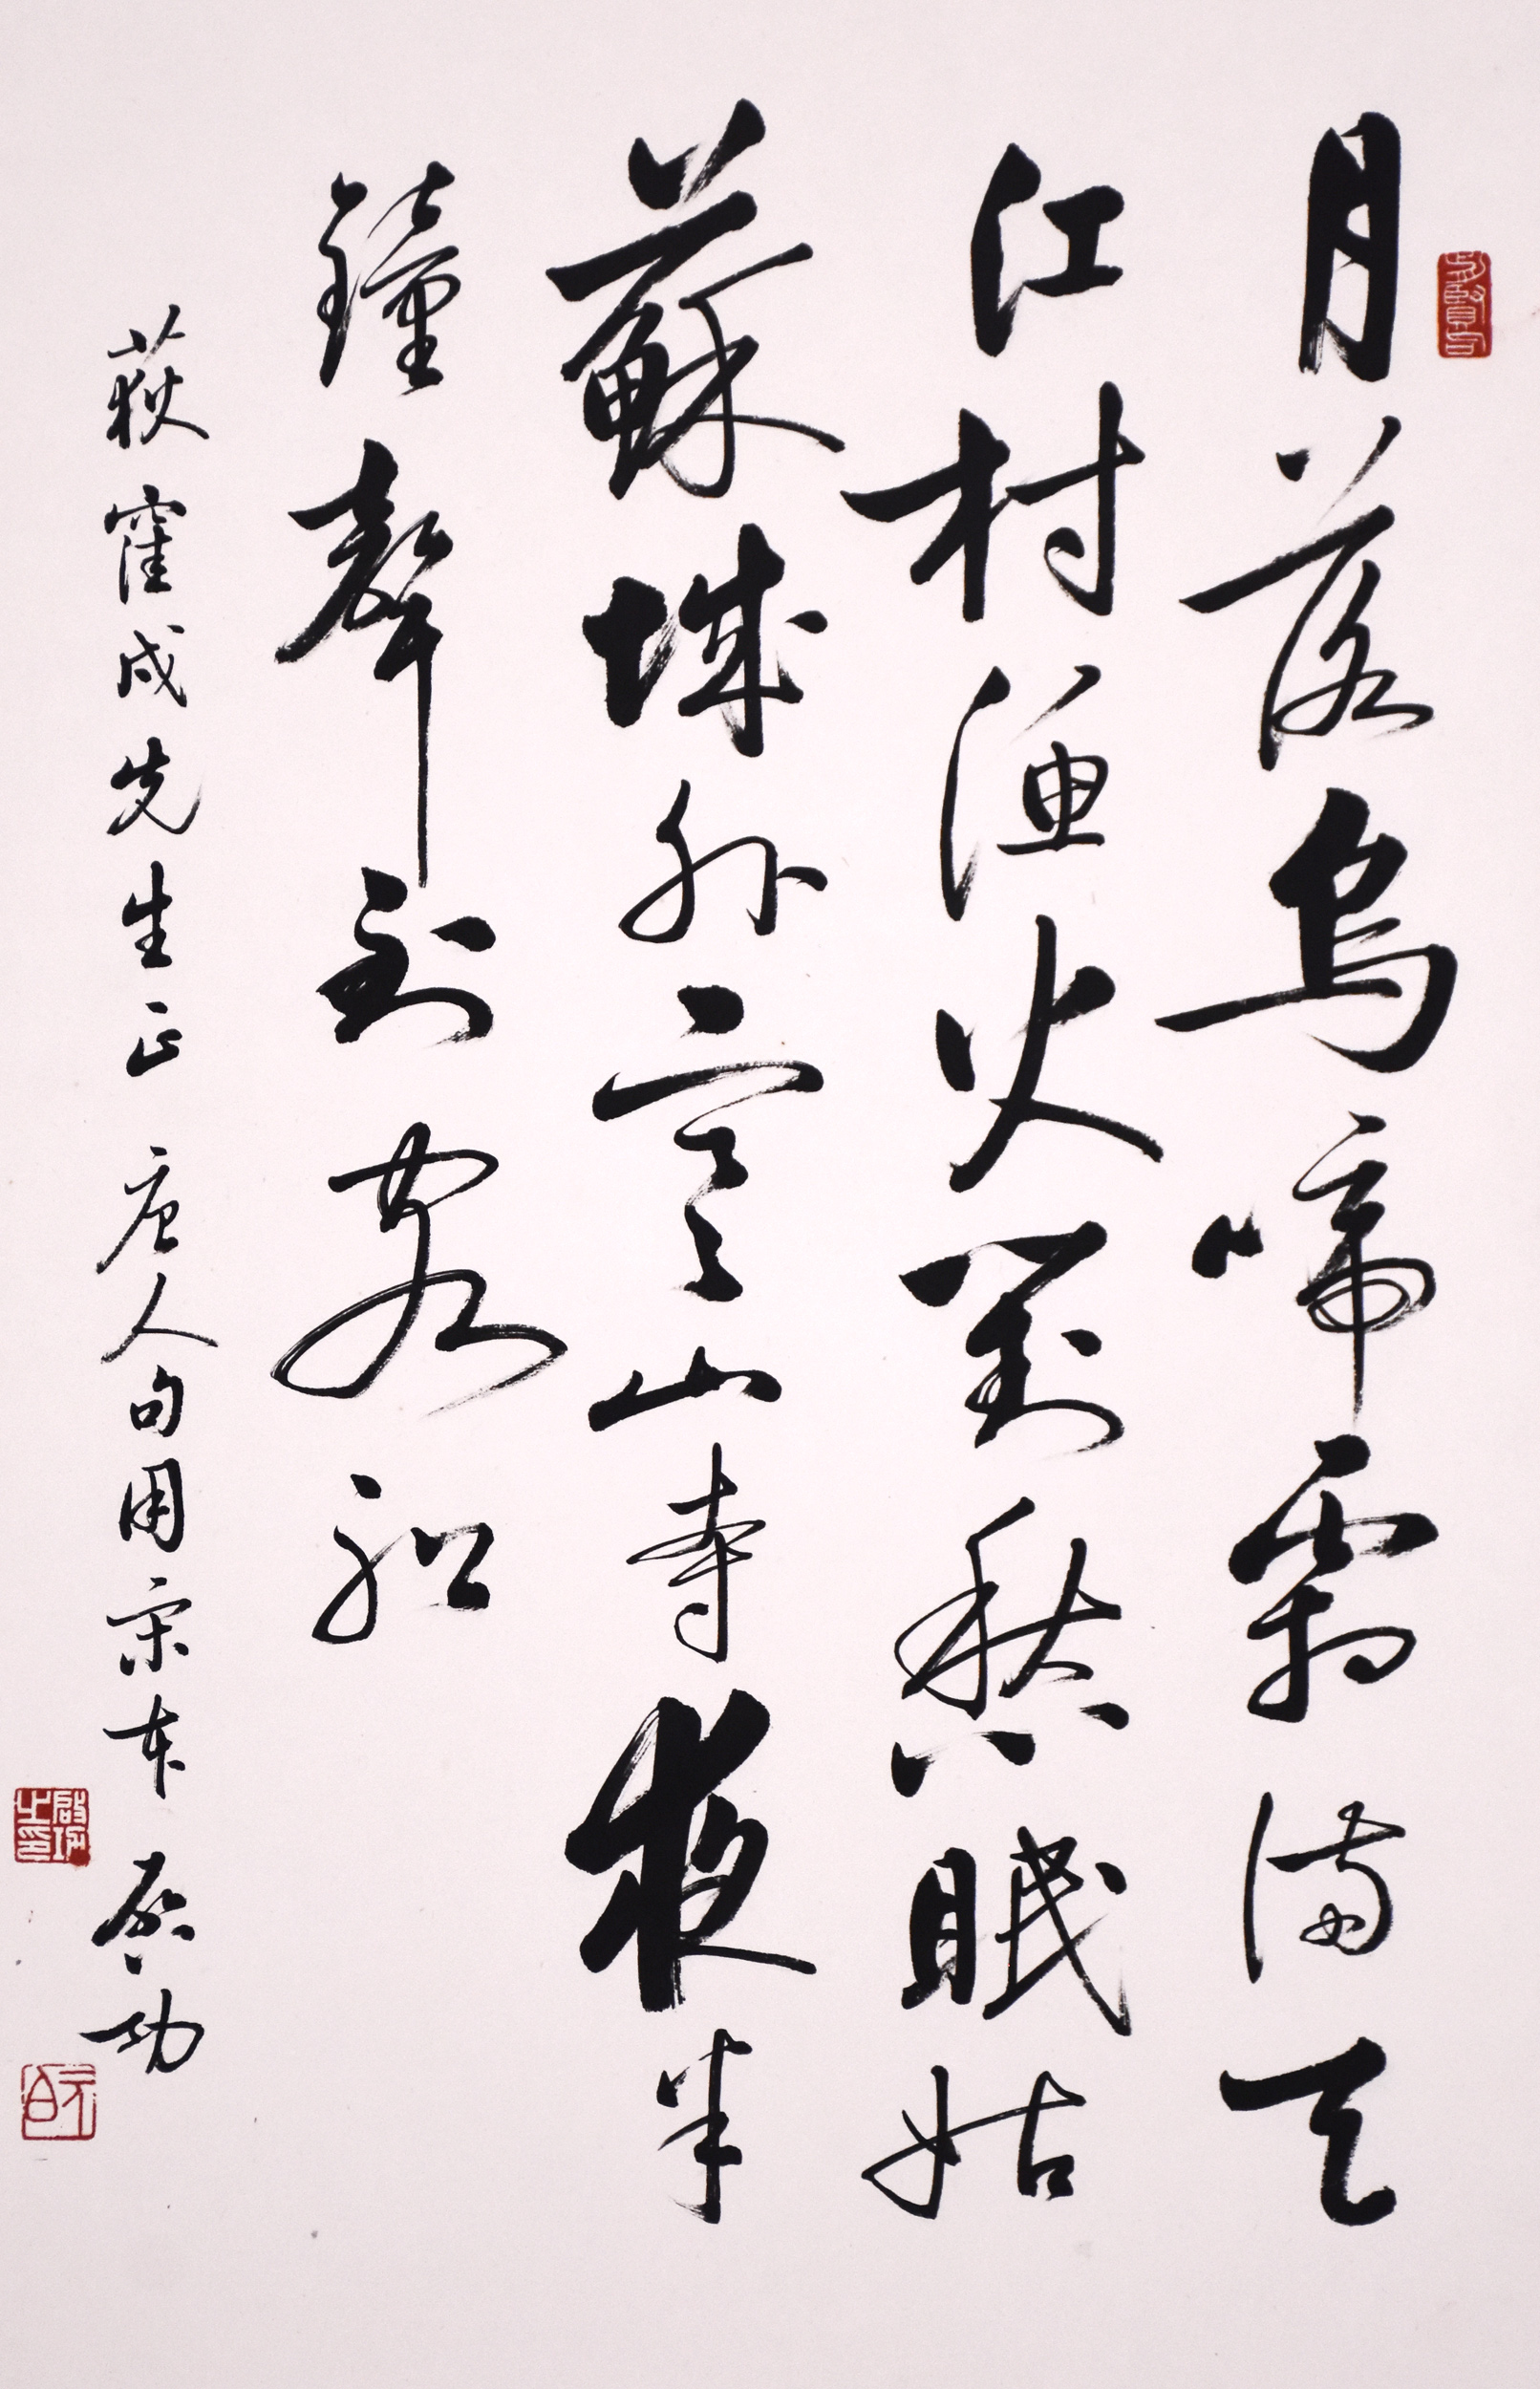 月落烏啼霜滿天
江村漁火對愁眠姑
蘇城外寒山寺夜半
鐘聲到客船
荻窪成先生正 唐人句用宋本 启功
啟功之印
元白